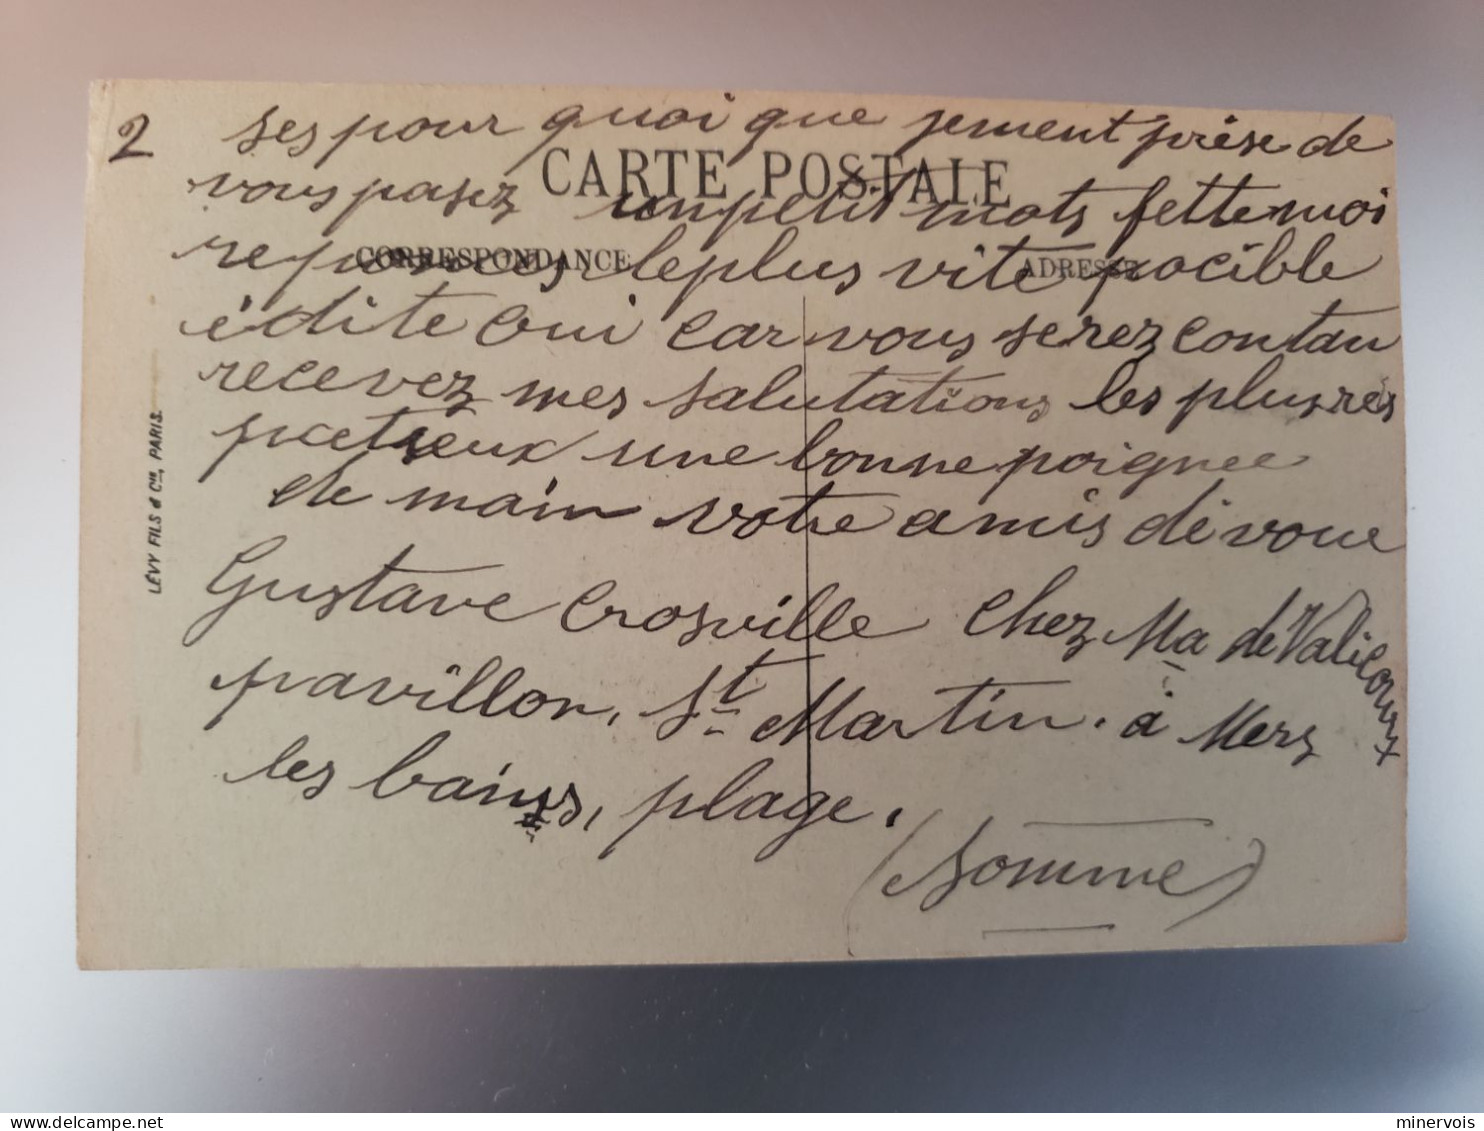 2
ses pour quoi que jement prése de
CARTE POSTALE
vous pasez un petit mots fette moi
CORRESPONDANCE
ADRESSE
reponses, le plus vite pocible
é dite oui car vous serez contan
recevez mes salutations les plus res
pectieux une bonne poignee
de main votre amis dévoue
Gustave Crosville chez Ma de Valicourt
pavillon, St Martin. à Mers
les bains, plage.
(Somme)
LÉVY FILS & Cie, PARIS.
minervois